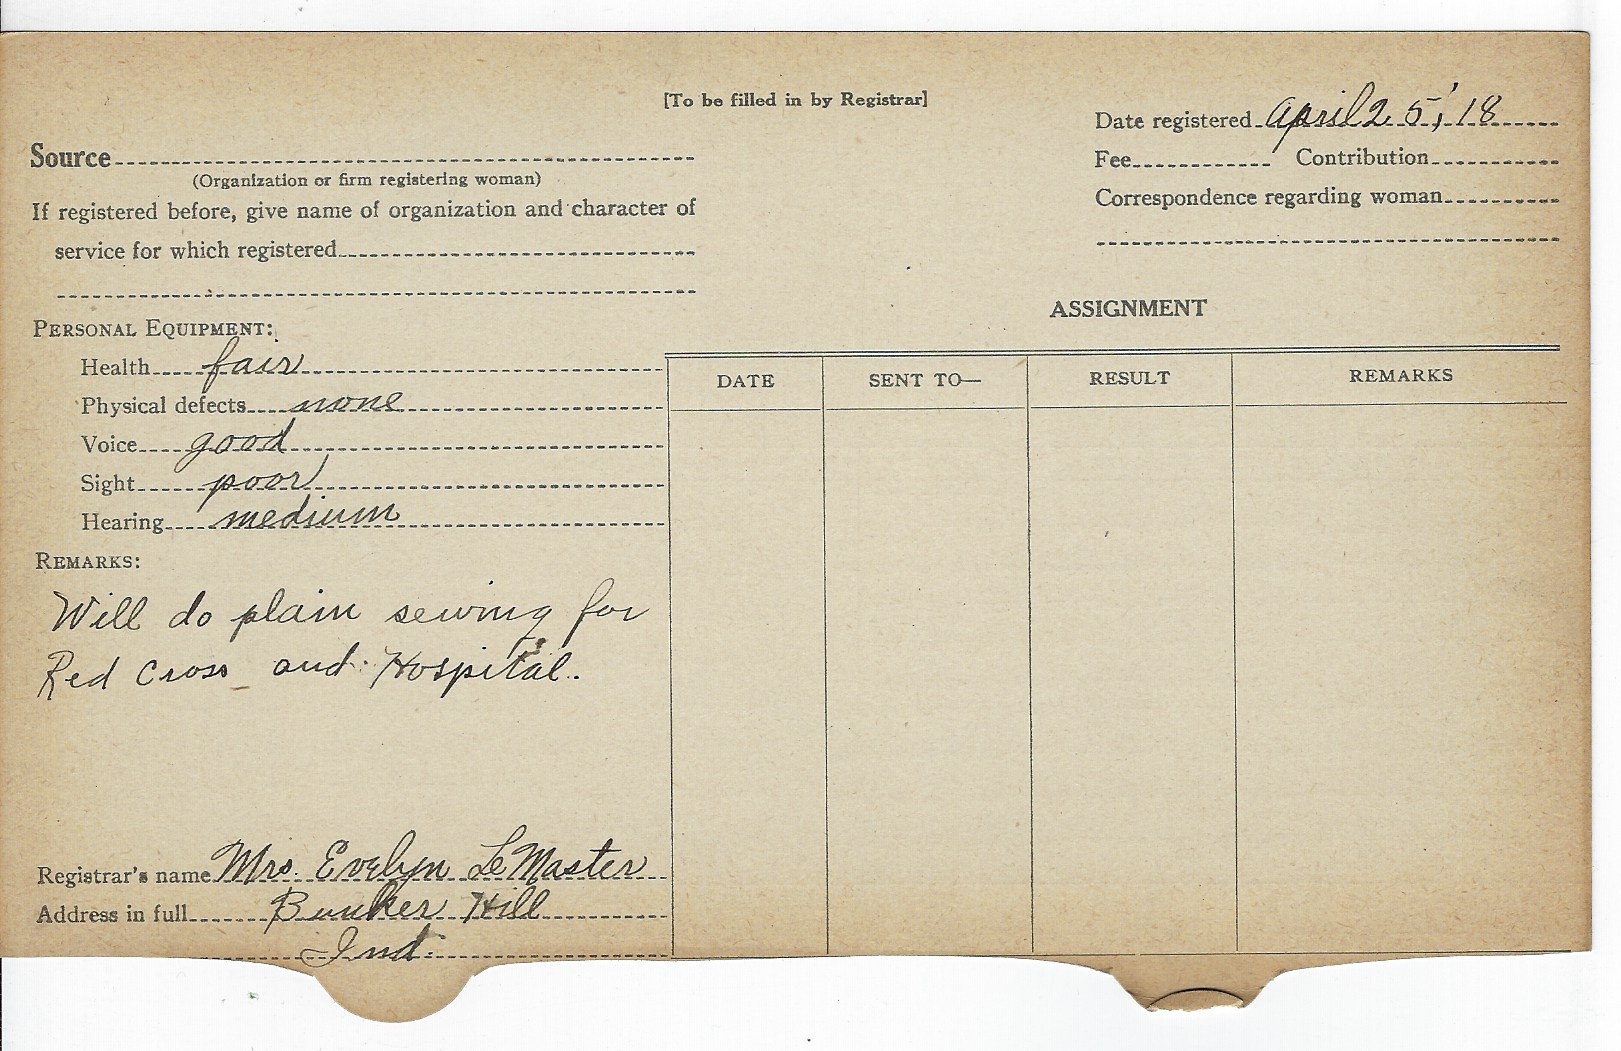 [To be filled in by Registrar]
Date registered April 25, '18
Source
Fee Contribution
(Organization or firm registering woman)
Correspondence regarding woman
If registered before, give name of organization and character of
service for which registered
ASSIGNMENT
PERSONAL EQUIPMENT:
Health fair
Physical defects none
Voice good
Sight poor
Hearing medium
DATE SENT TO— RESULT REMARKS
REMARKS:
Will do plain sewing for
Red Cross and Hospital.
Registrar's name Mrs. Evelyn LeMaster
Address in full Bunker Hill
Ind.